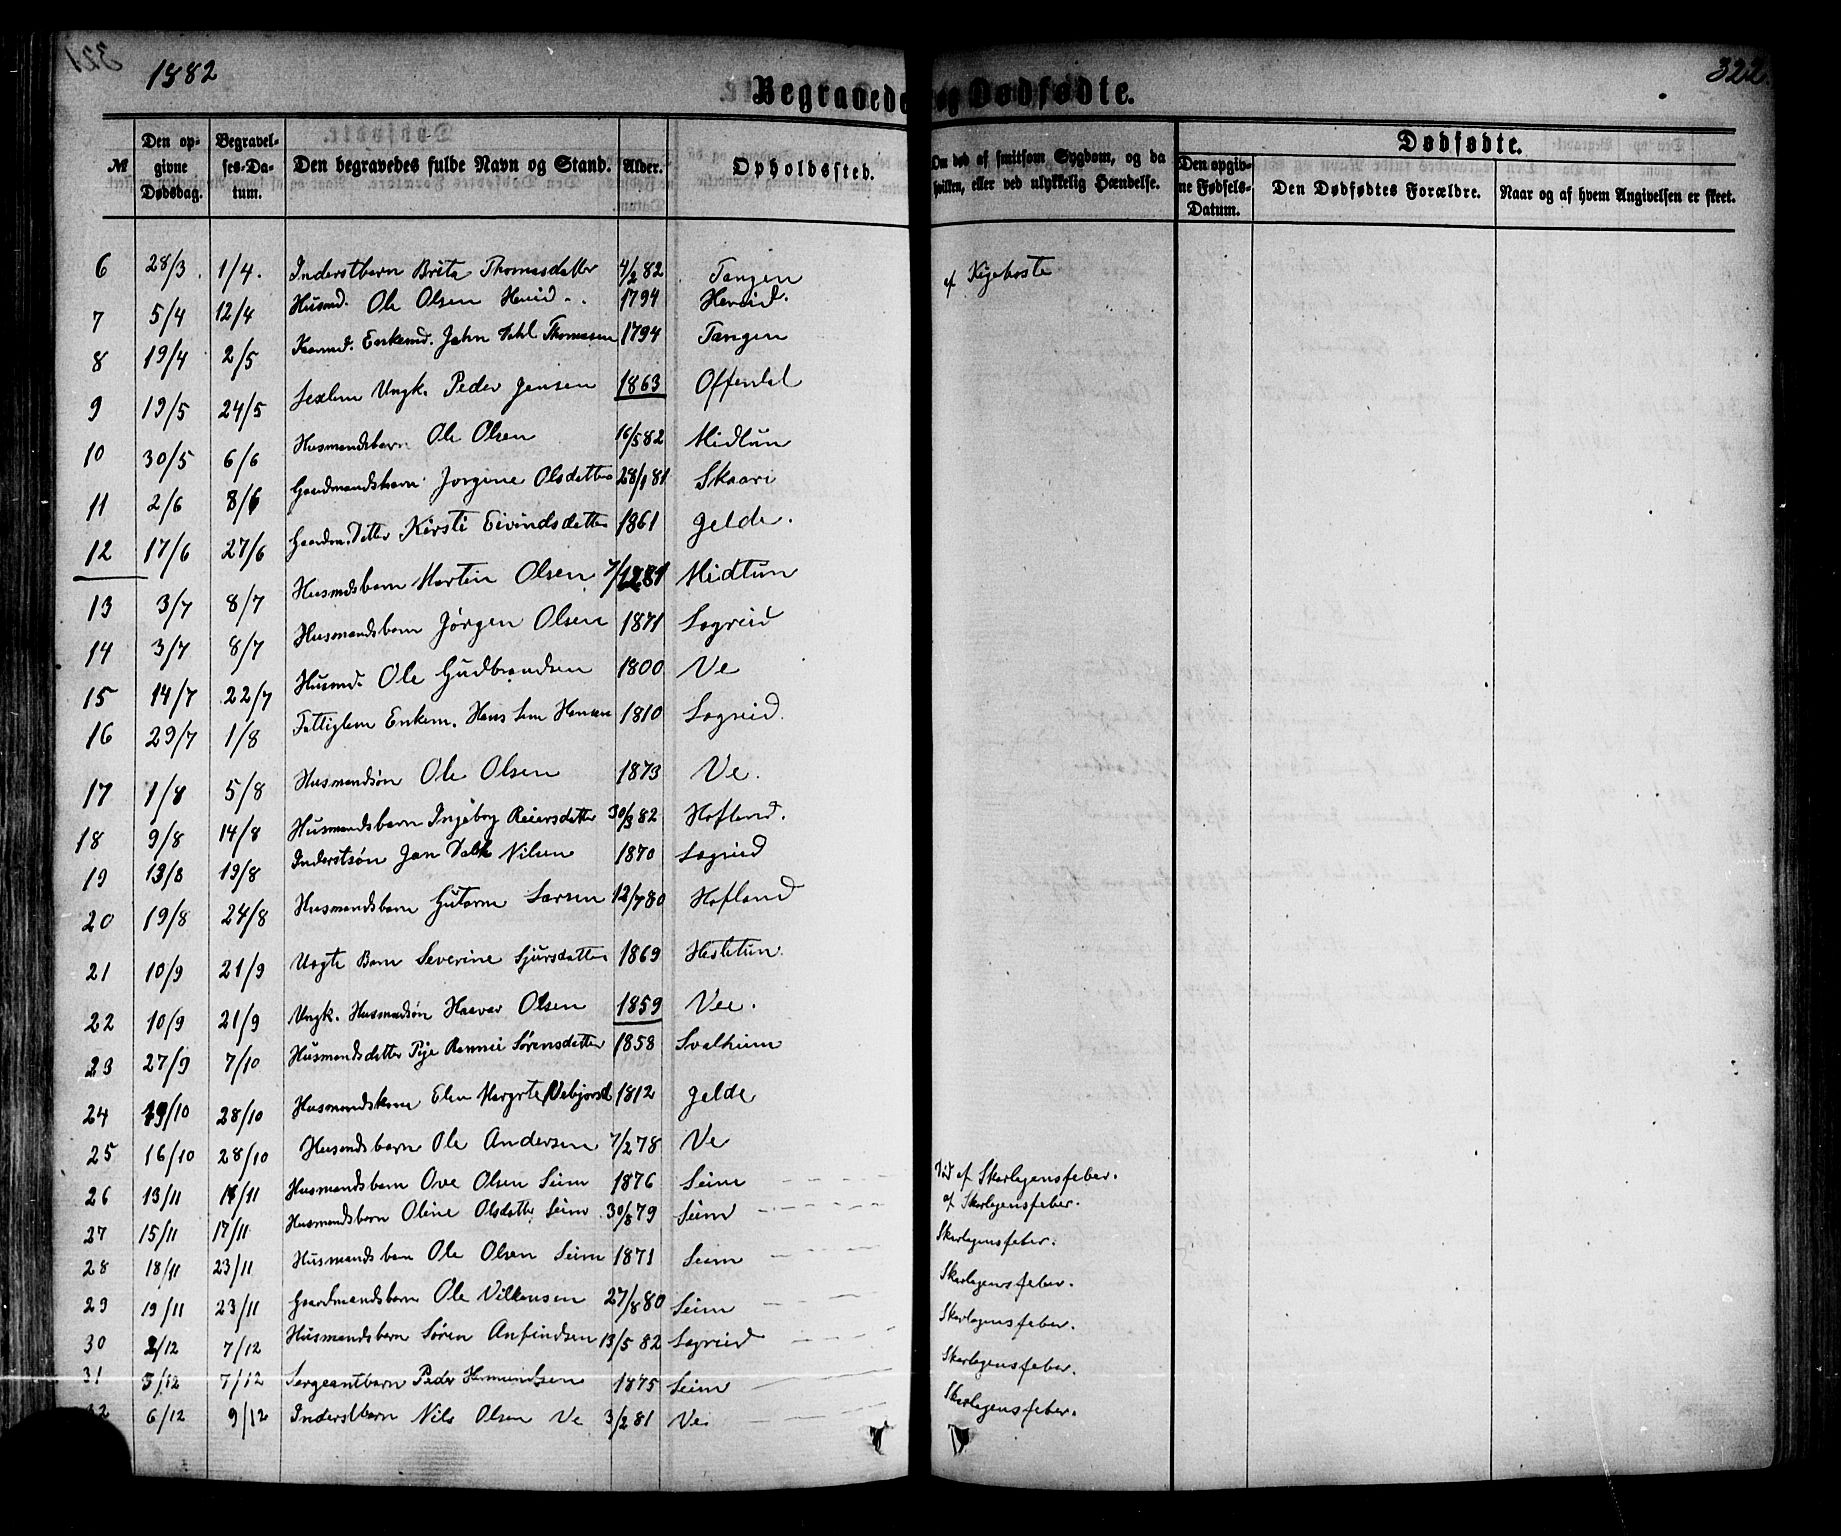 1882
322.
Begravede og Dødfødte.
№ Den opgivne Dødsdag. Begravelses-Datum. Den begravedes fulde Navn og Stand. Alder. Opholdssted. Om død af smitsom Sygdom, og da hvilken, eller ved ulykkelig Hændelse. Dødfødte. Den opgivne Fødsels-Datum. Den Dødfødtes Forældre. Naar og af hvem Angivelsen er skeet.
6 28/3. 1/4. Inderstbarn Brita Thomasdatter 4/2 82 Tangen af Kigehoste
7 5/4 12/4 Husmd. Ole Olsen 1794
8 19/4 2/5 Enkemd. John Thomassen 1794 Tangen
9 19/5 24/5 Ungk. Peder Jensen 1863 Offerdal
10 30/5 6/6 Husmandsbarn Ole Olsen 16/5 82 Midtun
11 2/6 8/6 Gaardmandsbarn Jorgine Olsdatter 28/1 81 Skaari
12 17/6 27/6 Gaardm. Datter Kirsti Eivindsdatter 1861 Gelde.
13 3/7 8/7 Husmdsbarn Martin Olsen 7/12 81 Midtun
14 3/7 8/7 Husmandsbarn Jørgen Olsen 1871 Sogreid
15 14/7 22/7 Husmd. Ole Gudbrandsen 1800 Ve
16 29/7 1/8 Fattiglem Enkem. Hans Hansen 1810 Sogreid.
17 1/8 5/8 Husmandsøn Ole Olsen 1873 Ve.
18 9/8 14/8 Husmandsbarn Ingeborg Reiersdatter 30/3 82 Hofland.
19 13/8 19/8 Inderstsøn Jan Nilsen 1870 Sogreid
20 19/8 24/8 Husmandsbarn Gutorm Larsen 12/7 80 Hofland
21 10/9 21/9 Barn Severine Sjursdatter 1869 Hestetun.
22 10/9 21/9 Ungk. Husmandsøn Haavar Olsen 1859 Vee.
23 27/9 7/10 Husmandsdatter Pige Sørensdatter 1858 Svalheim
24 19/10 28/10 Husmandskone Elen 1812 Gelde
25 16/10 28/10 Husmandsbarn Ole Andersen 7/2 78 Ve
26 13/11 18/11 Husmandsbarn Ove Olsen Seim 1876 Seim Død af Skarlagensfeber.
27 15/11 17/11 Husmandsbarn Oline Olsdatter Seim 30/8 79 Seim af Skarlagensfeber.
28 18/11 23/11 Husmandsbarn Ole Olsen Seim 1871 Seim Skarlagensfeber.
29 19/11 23/11 Gaardmandsbarn Ole Vilkensen 27/8 80 Seim Skarlagensfeber.
30 2/12 7/12 Husmandsbarn Søren Anfindsen 13/5 82 Sogreid Skarlagensfeber.
31 5/12 7/12 Sergeantbarn Peder Hermundsen 1875 Seim Skarlagensfeber.
6/12 9/12 Inderstbarn Nils Olsen Ve 3/2 81 Ve Skarlagensfeber.